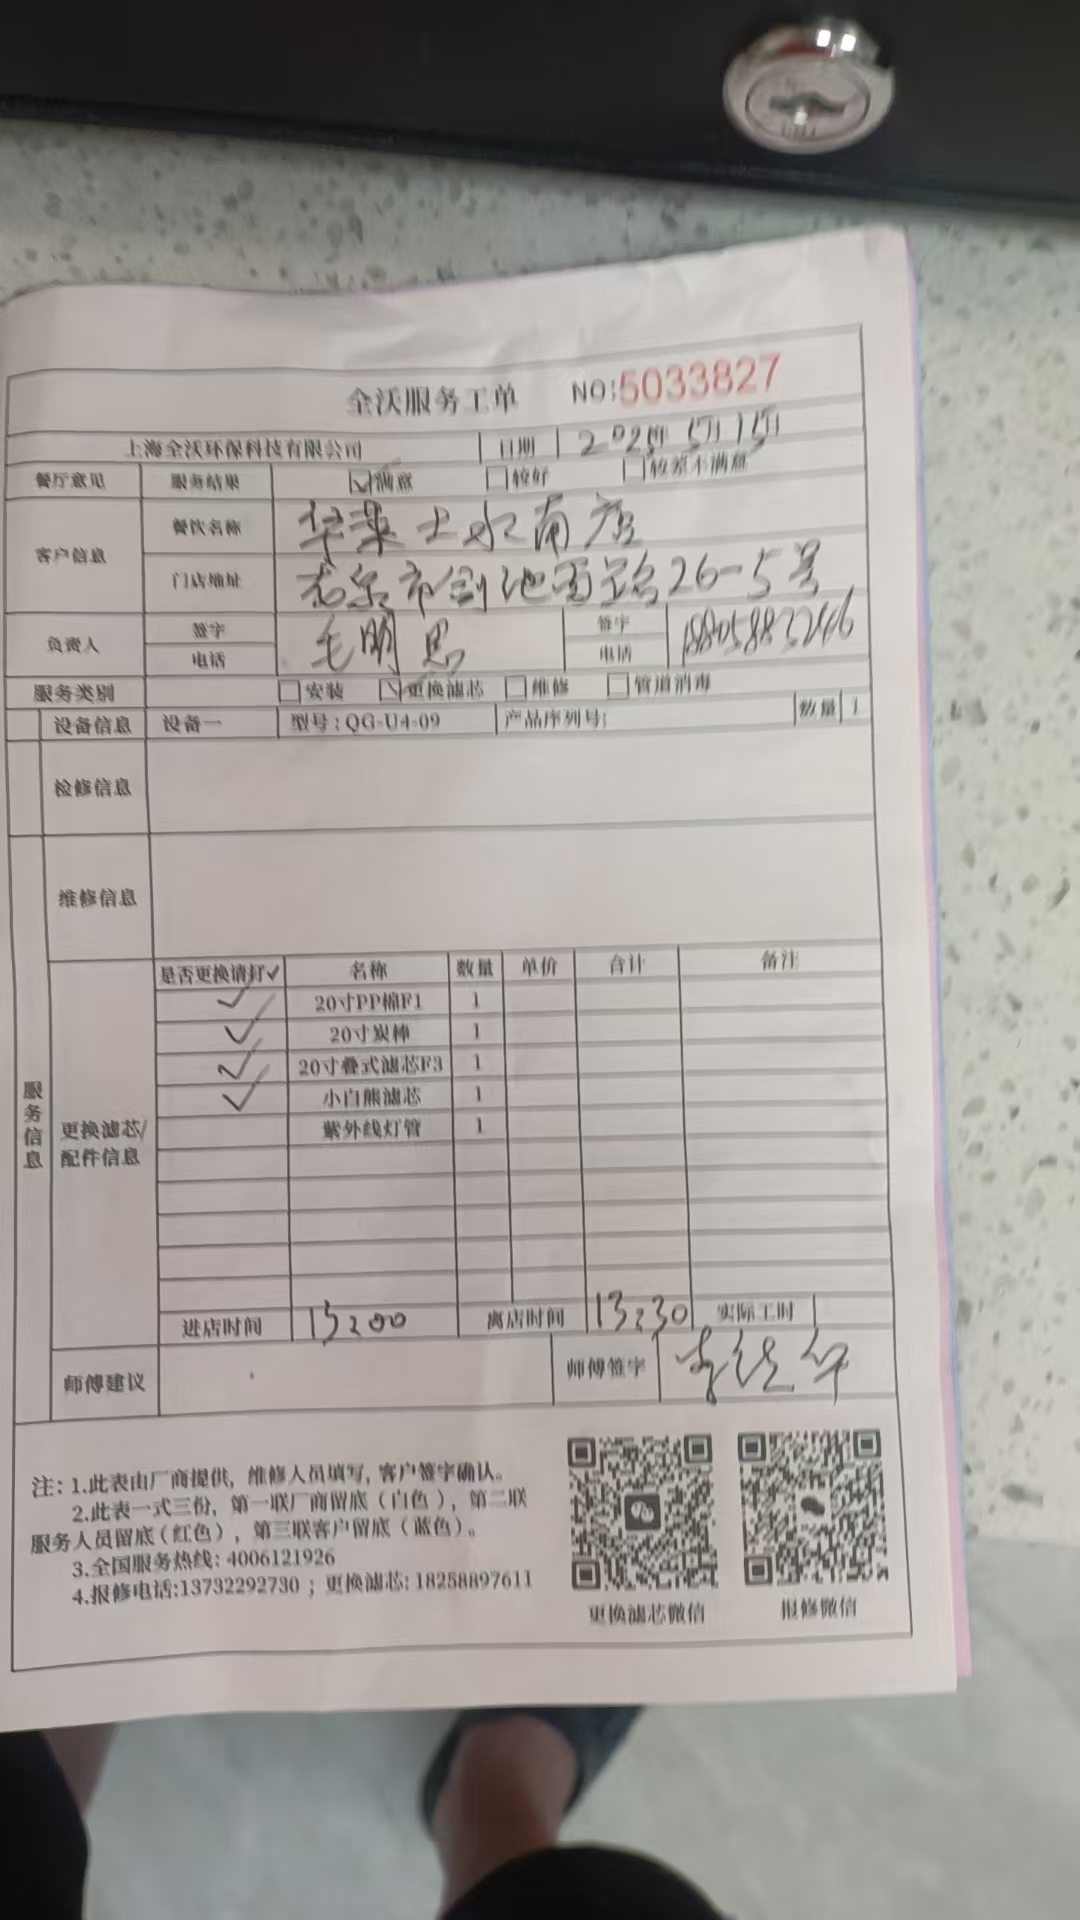 全沃服务工单 NO:5033827
上海全沃环保科技有限公司 日期 5月15日
餐厅意见 服务结果 ☑满意 □较好 □较差不满意
客户信息 餐饮名称 华莱士水南店
门店地址 龙泉市剑池西路26-5号
负责人 签字 电话 毛明 签字 电话
服务类别 □安装 ☑更换滤芯 □维修 □管道消毒
设备信息 设备一 型号:QG-U4-09 产品序列号: 数量 1
检修信息
维修信息
服务信息
更换滤芯/配件信息
是否更换请打✓ 名称 数量 单价 合计 备注
✓ 20寸PP棉F1 1
✓ 20寸炭棒 1
✓ 20寸叠式滤芯F3 1
✓ 小白熊滤芯 1
紫外线灯管 1
进店时间 13:00 离店时间 13:30 实际工时
师傅建议 师傅签字
注: 1.此表由厂商提供, 维修人员填写, 客户签字确认。
2.此表一式三份, 第一联厂商留底(白色), 第二联
服务人员留底(红色), 第三联客户留底(蓝色)。
3.全国服务热线: 4006121926
4.报修电话:13732292730 ; 更换滤芯: 18258897611
更换滤芯微信 报修微信